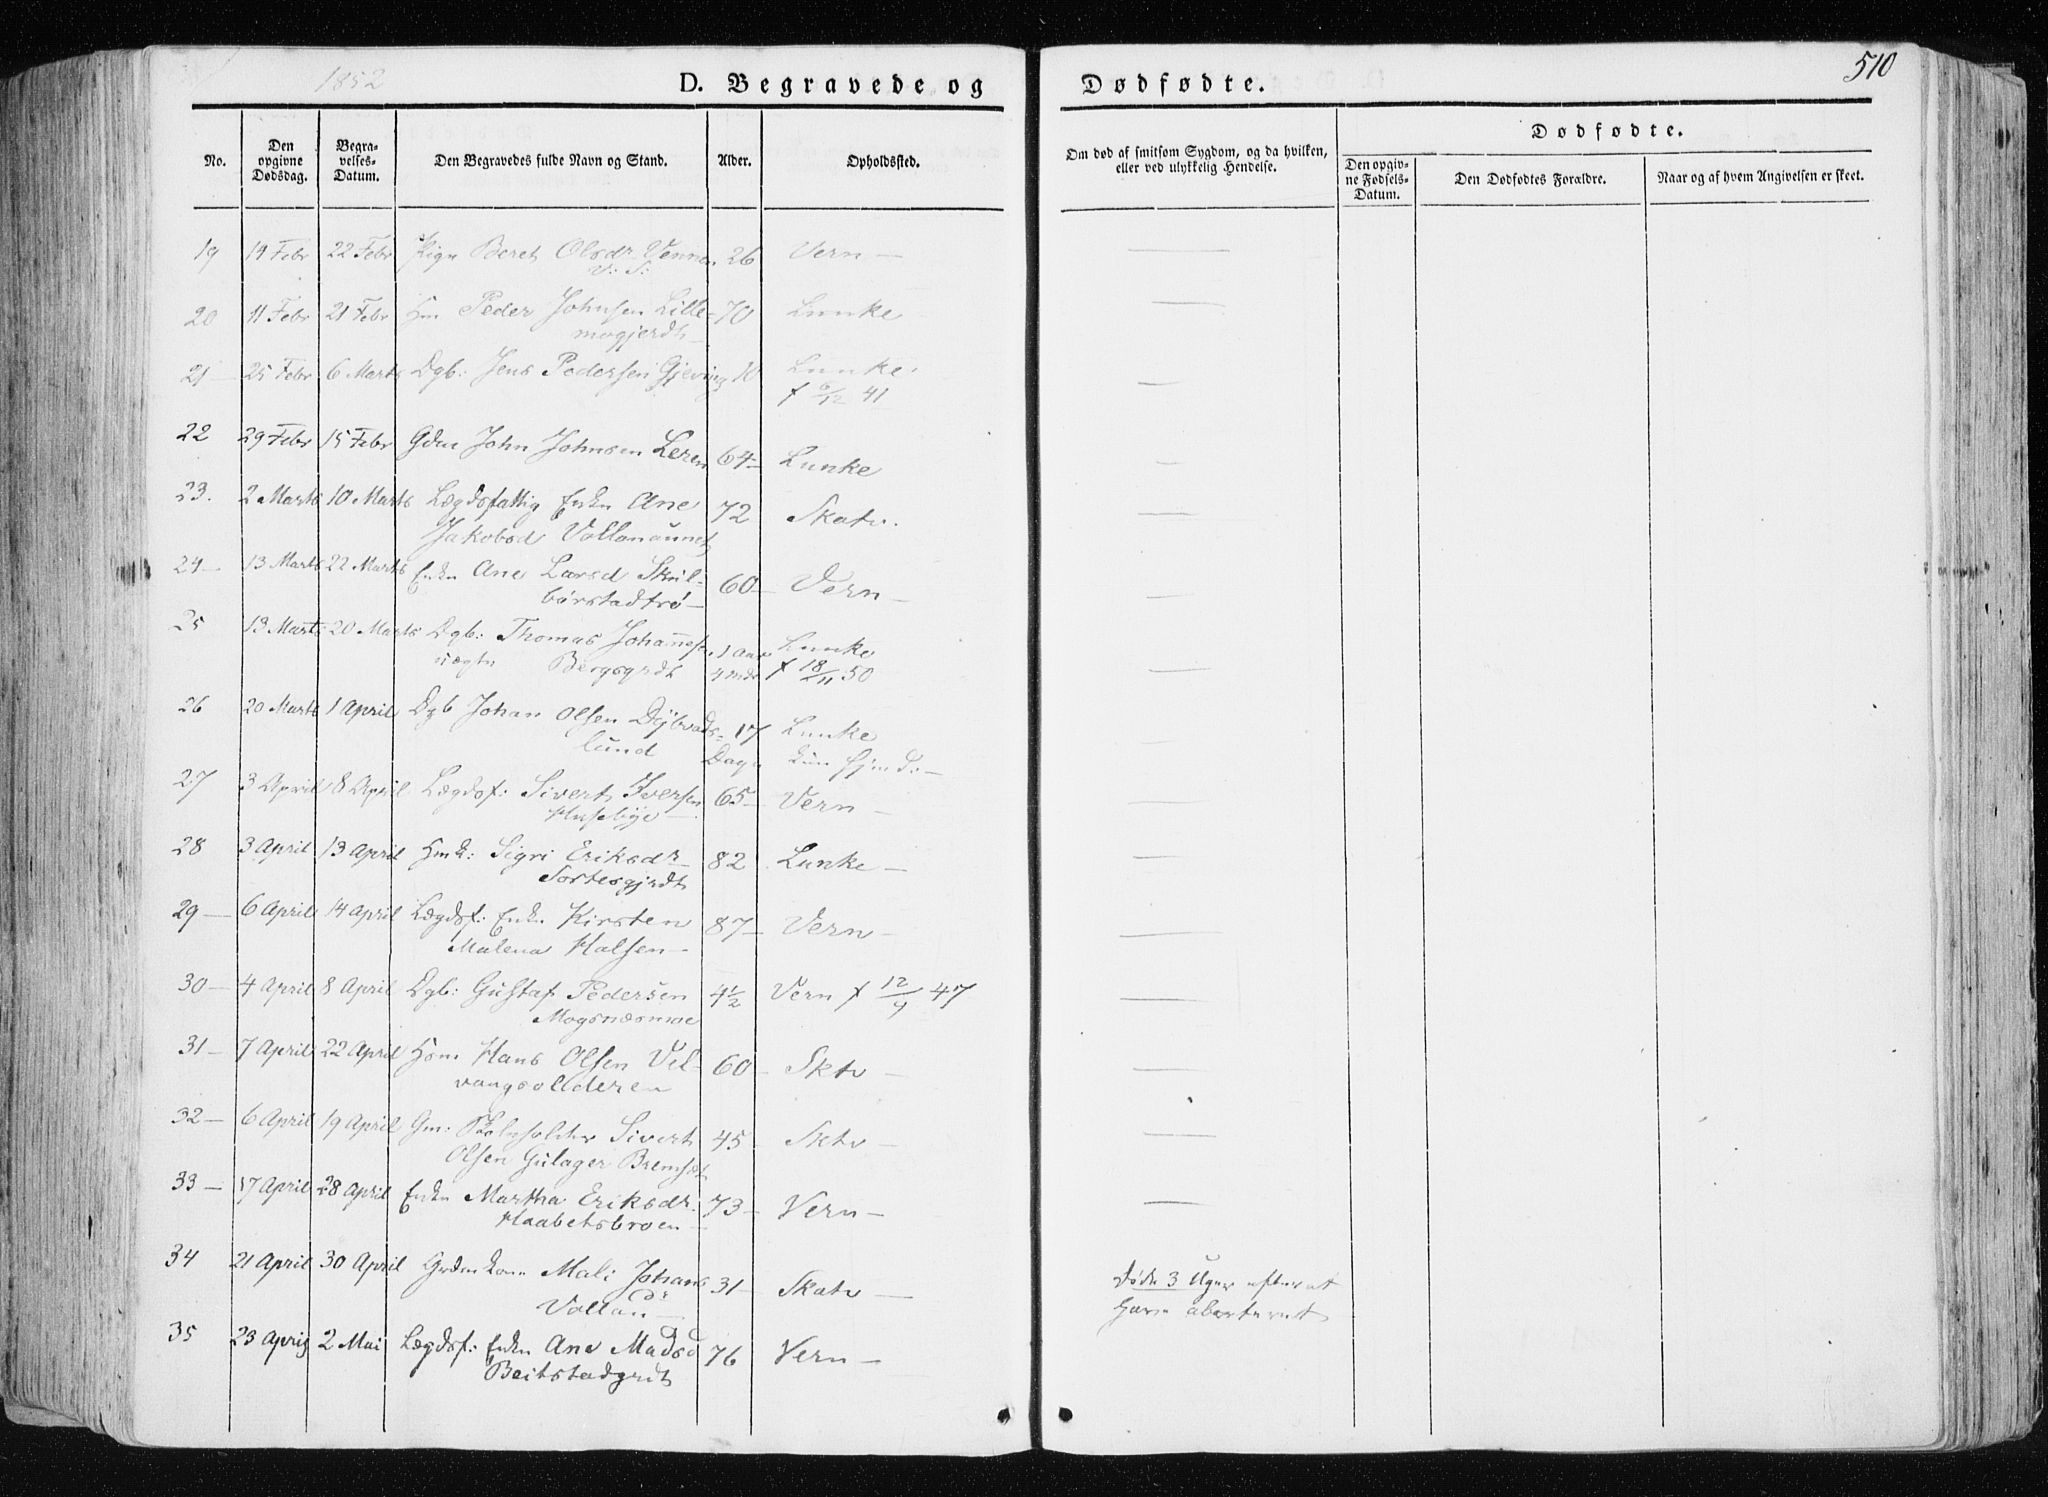 1852
D. Begravede og Dødfødte.
510
No.
Den opgivne Dødsdag.
Begravelses-Datum.
Den Begravedes fulde Navn og Stand.
Alder.
Opholdssted.
Om død af smitsom Sygdom, og da hvilken, eller ved ulykkelig Hendelse.
Dødfødte.
Den opgivne Fødsels-Datum.
Den Dødfødtes Forældre.
Naar og af hvem Angivelsen er skeet.
19 14 Febr 22 Febr Pige Beret Olsdr Vennen 26 Vern —
V: S:
20 11 Febr 21 Febr Hm Peder Johnsen Lille- 70 Lunke
mogjerdt
21 — 25 Febr 6 Marts Dgb: Jens Pedersen Gjeving 10 Lunke
f 6/12 41
22 29 Febr 15 Febr Gdm John Johnsen Leren 64 — Lunke
23. 2 Marts 10 Marts Lægdsfattig Enke Ane 72 Skatv.
Jakobsd Vollanaunet
24 — 13 Marts 22 Marts Enke Ane Larsd Skul- 60 — Vern —
børstadtrø —
25 13 Marts 20 Marts Dgb: Thomas Johannesen 1 Aar Lunke
uægte Bergsgrdt 4 Mdr f 18/11 50
26 20 Marts 1 April Dgb Johan Olsen Dybvads- 17 Lunke
lund Dage kun hjmd: —
27 3 April 8 April Lægdsf: Sivert Iversen 65 — Vern —
Husebye
28 3 April 13 April Hmk: Sigri Eriksdr 82 Lunke —
Sortesgjrdt
29 — 6 April 14 April Lægdsf: Enke Kirsten 87 — Vern —
Malena Halsen —
30 — 4 April 8 April Dgb: Gustaf Pedersen 4½ Vern f 12/9 47
Mogsnæsmoe
31 — 7 April 22 April Hsm Hans Olsen Vel- 60 — Sktv —
vangsvalderen
32 — 6 April 19 April Gm: Sivert 45 — Sktv —
Olsen Gulager Bremset
33 — 17 April 28 April Enke Martha Eriksdr. 73 — Vern —
Haabetsbroen —
34 21 April 30 April Grdmkone Mali Johans 31 — Skatv —
dr
Vollan —
Døde 3 Uger efter at
have aborteret
35 23 April 2 Mai Lægdsf: Enke Ane Madsd 76 Vern —
Beitstadgrdt